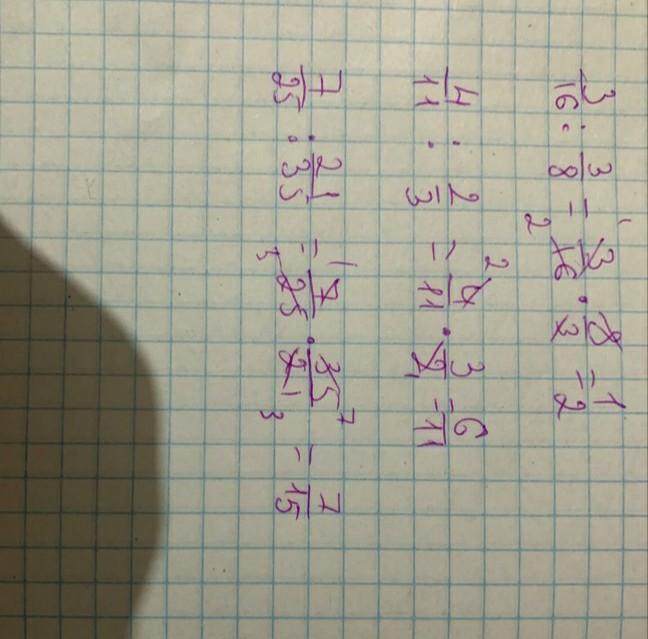 3/16 : 3/8 = 3/16 · 8/3 = 1/2
4/11 : 2/3 = 4/11 · 3/2 = 6/11
7/25 : 21/35 = 7/25 · 35/21 = 7/15